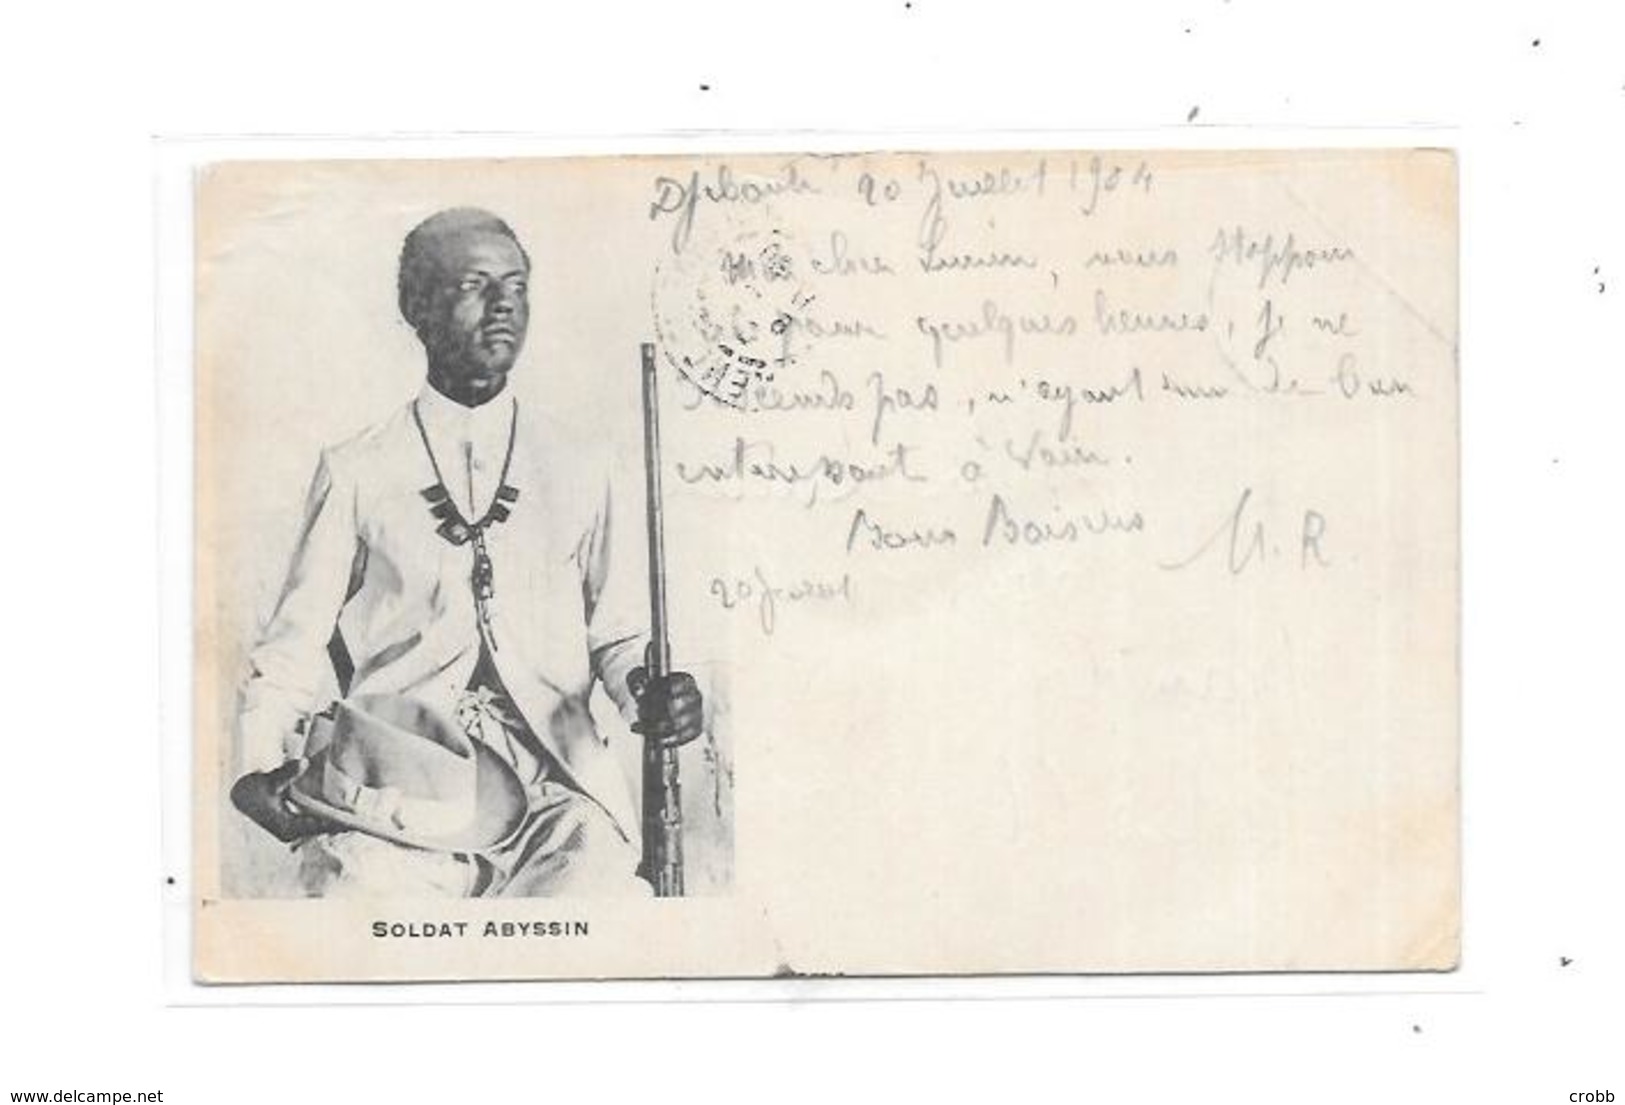 Djibouti 20 Juillet 1904
Mon cher Lucien, nous stoppons
ici pour quelques heures, je ne
descends pas, n'ayant rien de bien
interessant à voir.
Bons Baisers M. R.
20 Juillet
SOLDAT ABYSSIN
www.delcampe.net
crobb